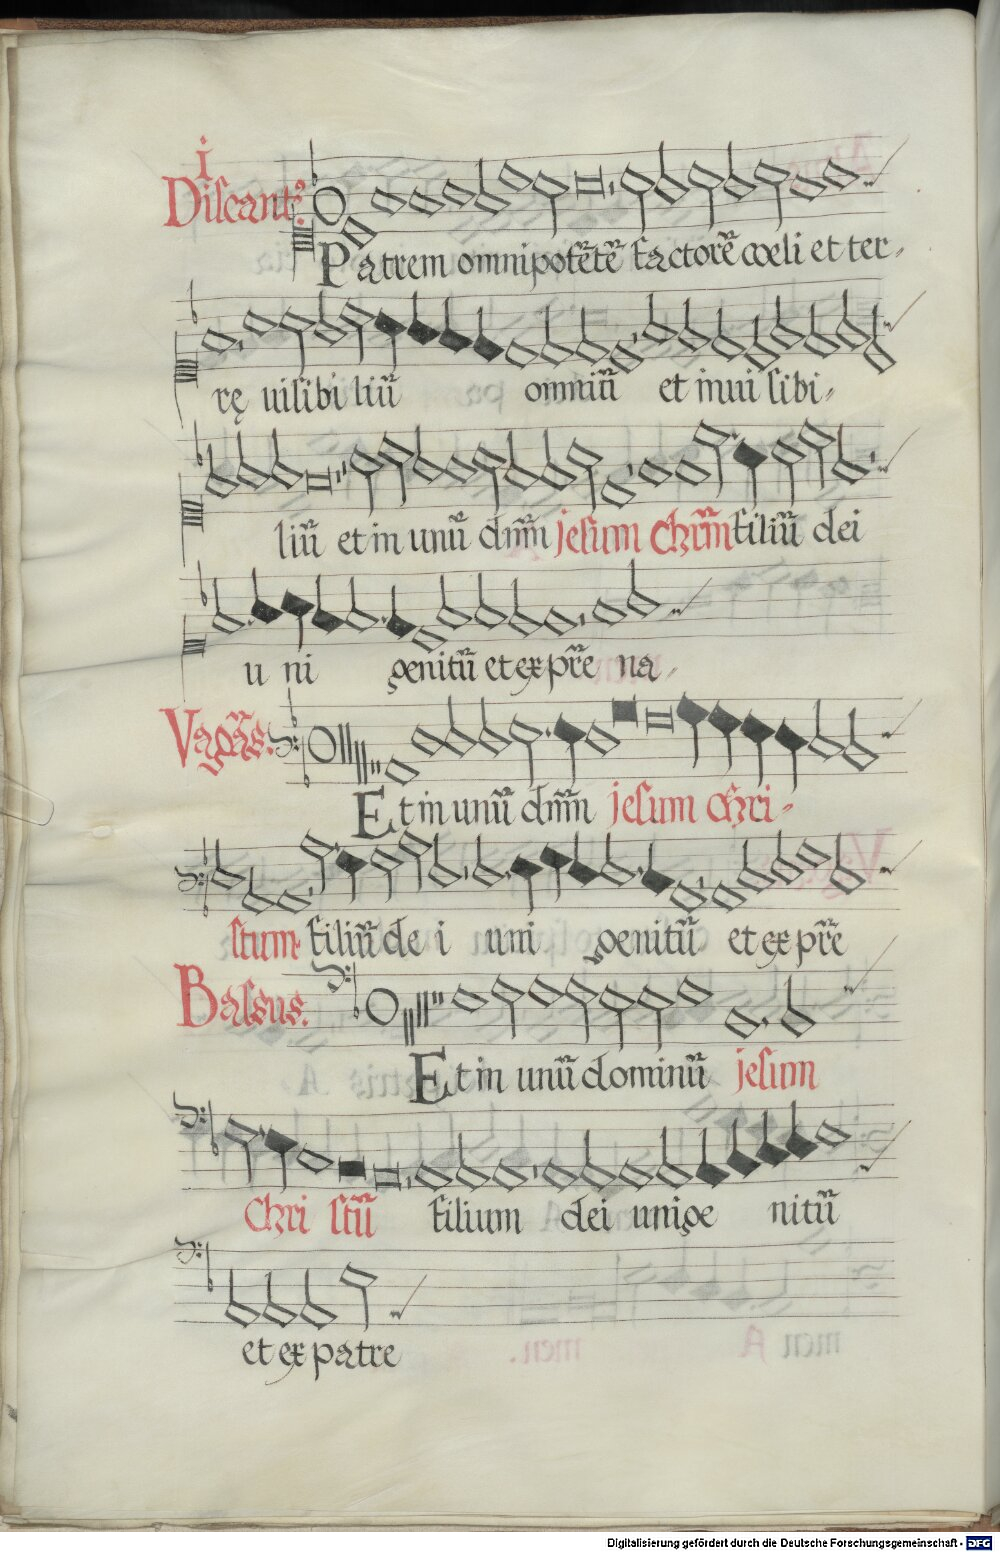 1
Discant9.
Patrem omnipotētē factorē cœli et ter-
rę uisibiliū omniū et inuisibi-
liū et in unū dnm̄ jesum chr̄m filiū dei
u ni genitū et ex pr̄e na-
Vagās.
Et in unū dnm̄ jesum chri-
stum filiū de i uni genitū et ex pr̄e
Bassus.
Et in unū dominū jesum
Chri stū filium dei unige nitū
et ex patre
Digitalisierung gefördert durch die Deutsche Forschungsgemeinschaft - DFG